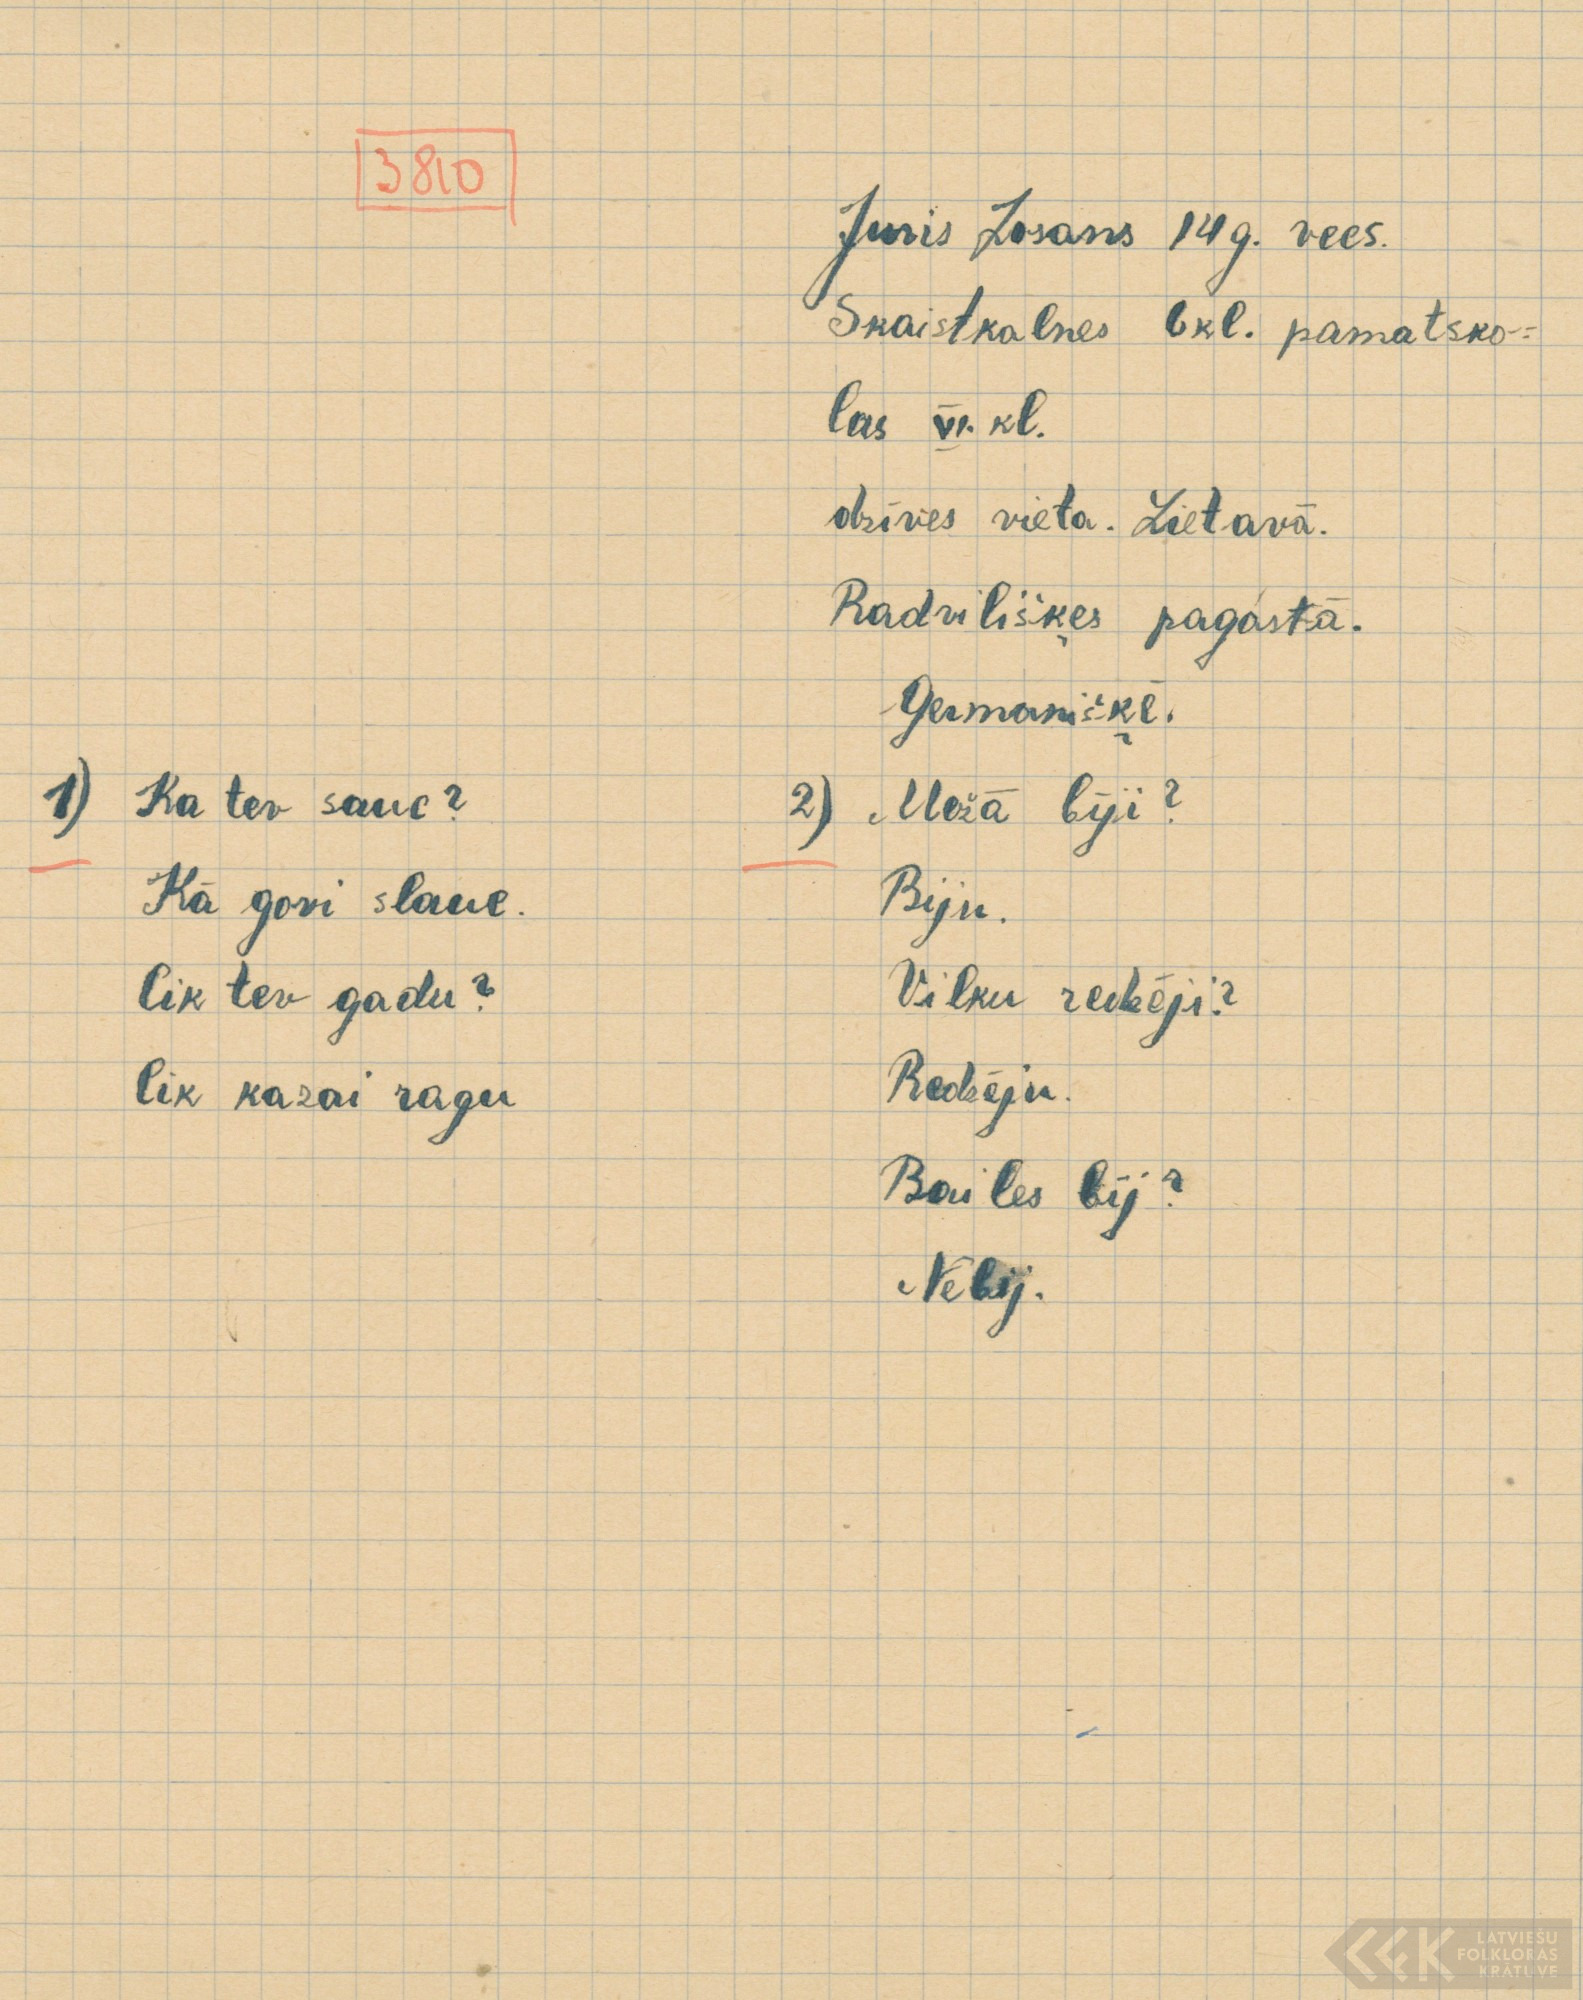 3810
Juris Losans 14 g. vecs.
Skaistkalnes 6kl. pamatsko-
las VI. kl.
dzīves vieta. Lietavā.
Radvilišķes pagastā.
Germanišķē.
1) Ka tev sauc?
Kā govi slauc.
Cik tev gadu?
Cik kazai ragu
2) Mežā biji?
Biju.
Vilku redzēji?
Redzēju.
Bailes bij?
Nēbij.
LATVIEŠU
FOLKLORAS
KRĀTUVE